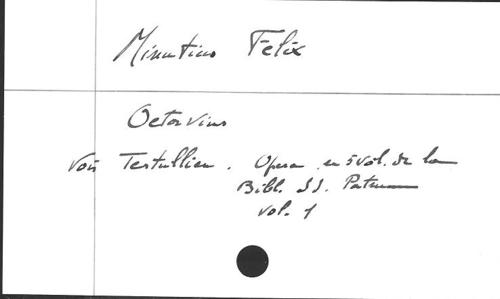 Minutius Felix
Octavius
Voir Tertullien. Opera en 5 vol. de la
Bibl. SS. Patrum
vol. 1